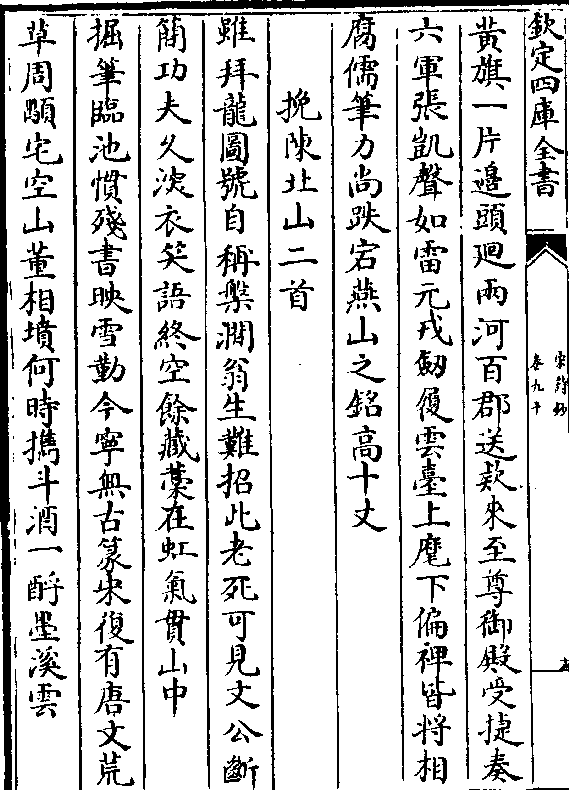 欽定四庫全書
宋詩鈔
卷九十
黃旗一片邊頭廻兩河百郡送欵來至尊御殿受捷奏
六軍張凱聲如雷元戎劒履雲臺上麾下偏裨皆將相
腐儒筆力尚跌宕燕山之銘高十丈
挽陳北山二首
雖拜龍圖號自稱槃澗翁生難招此老死可見文公斷
簡功夫久深衣笑語終空餘藏藳在虹氣貫山中
掘筆臨池慣殘書映雪勤今寧無古篆宋復有唐文荒
草周顒宅空山董相墳何時擕斗酒一酹墨溪雲